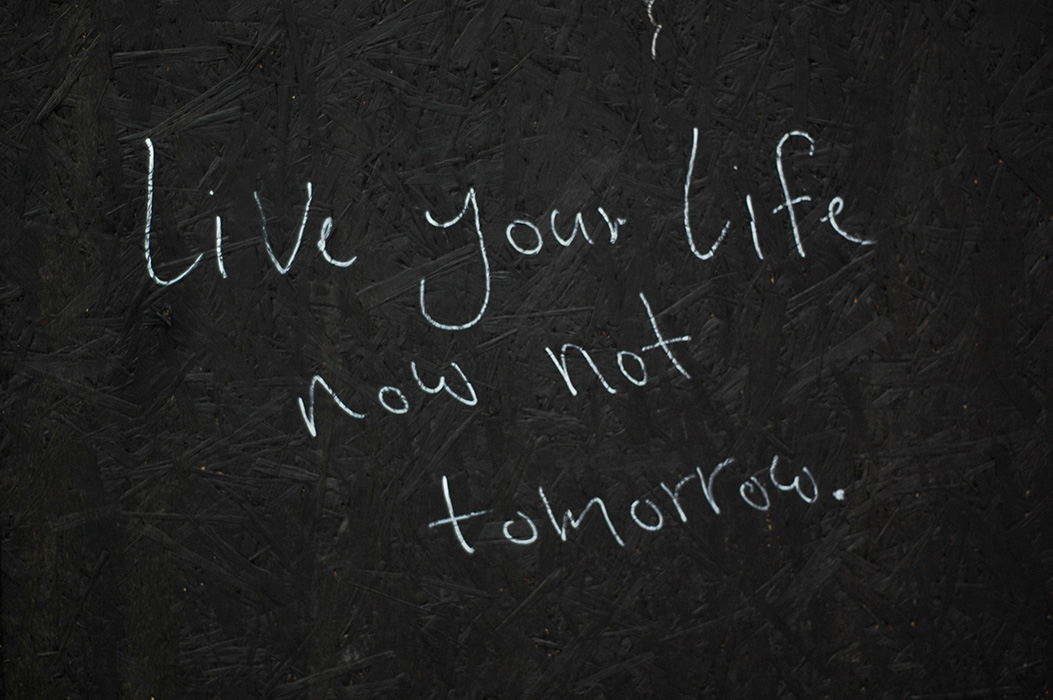 Live your life
now not
tomorrow.